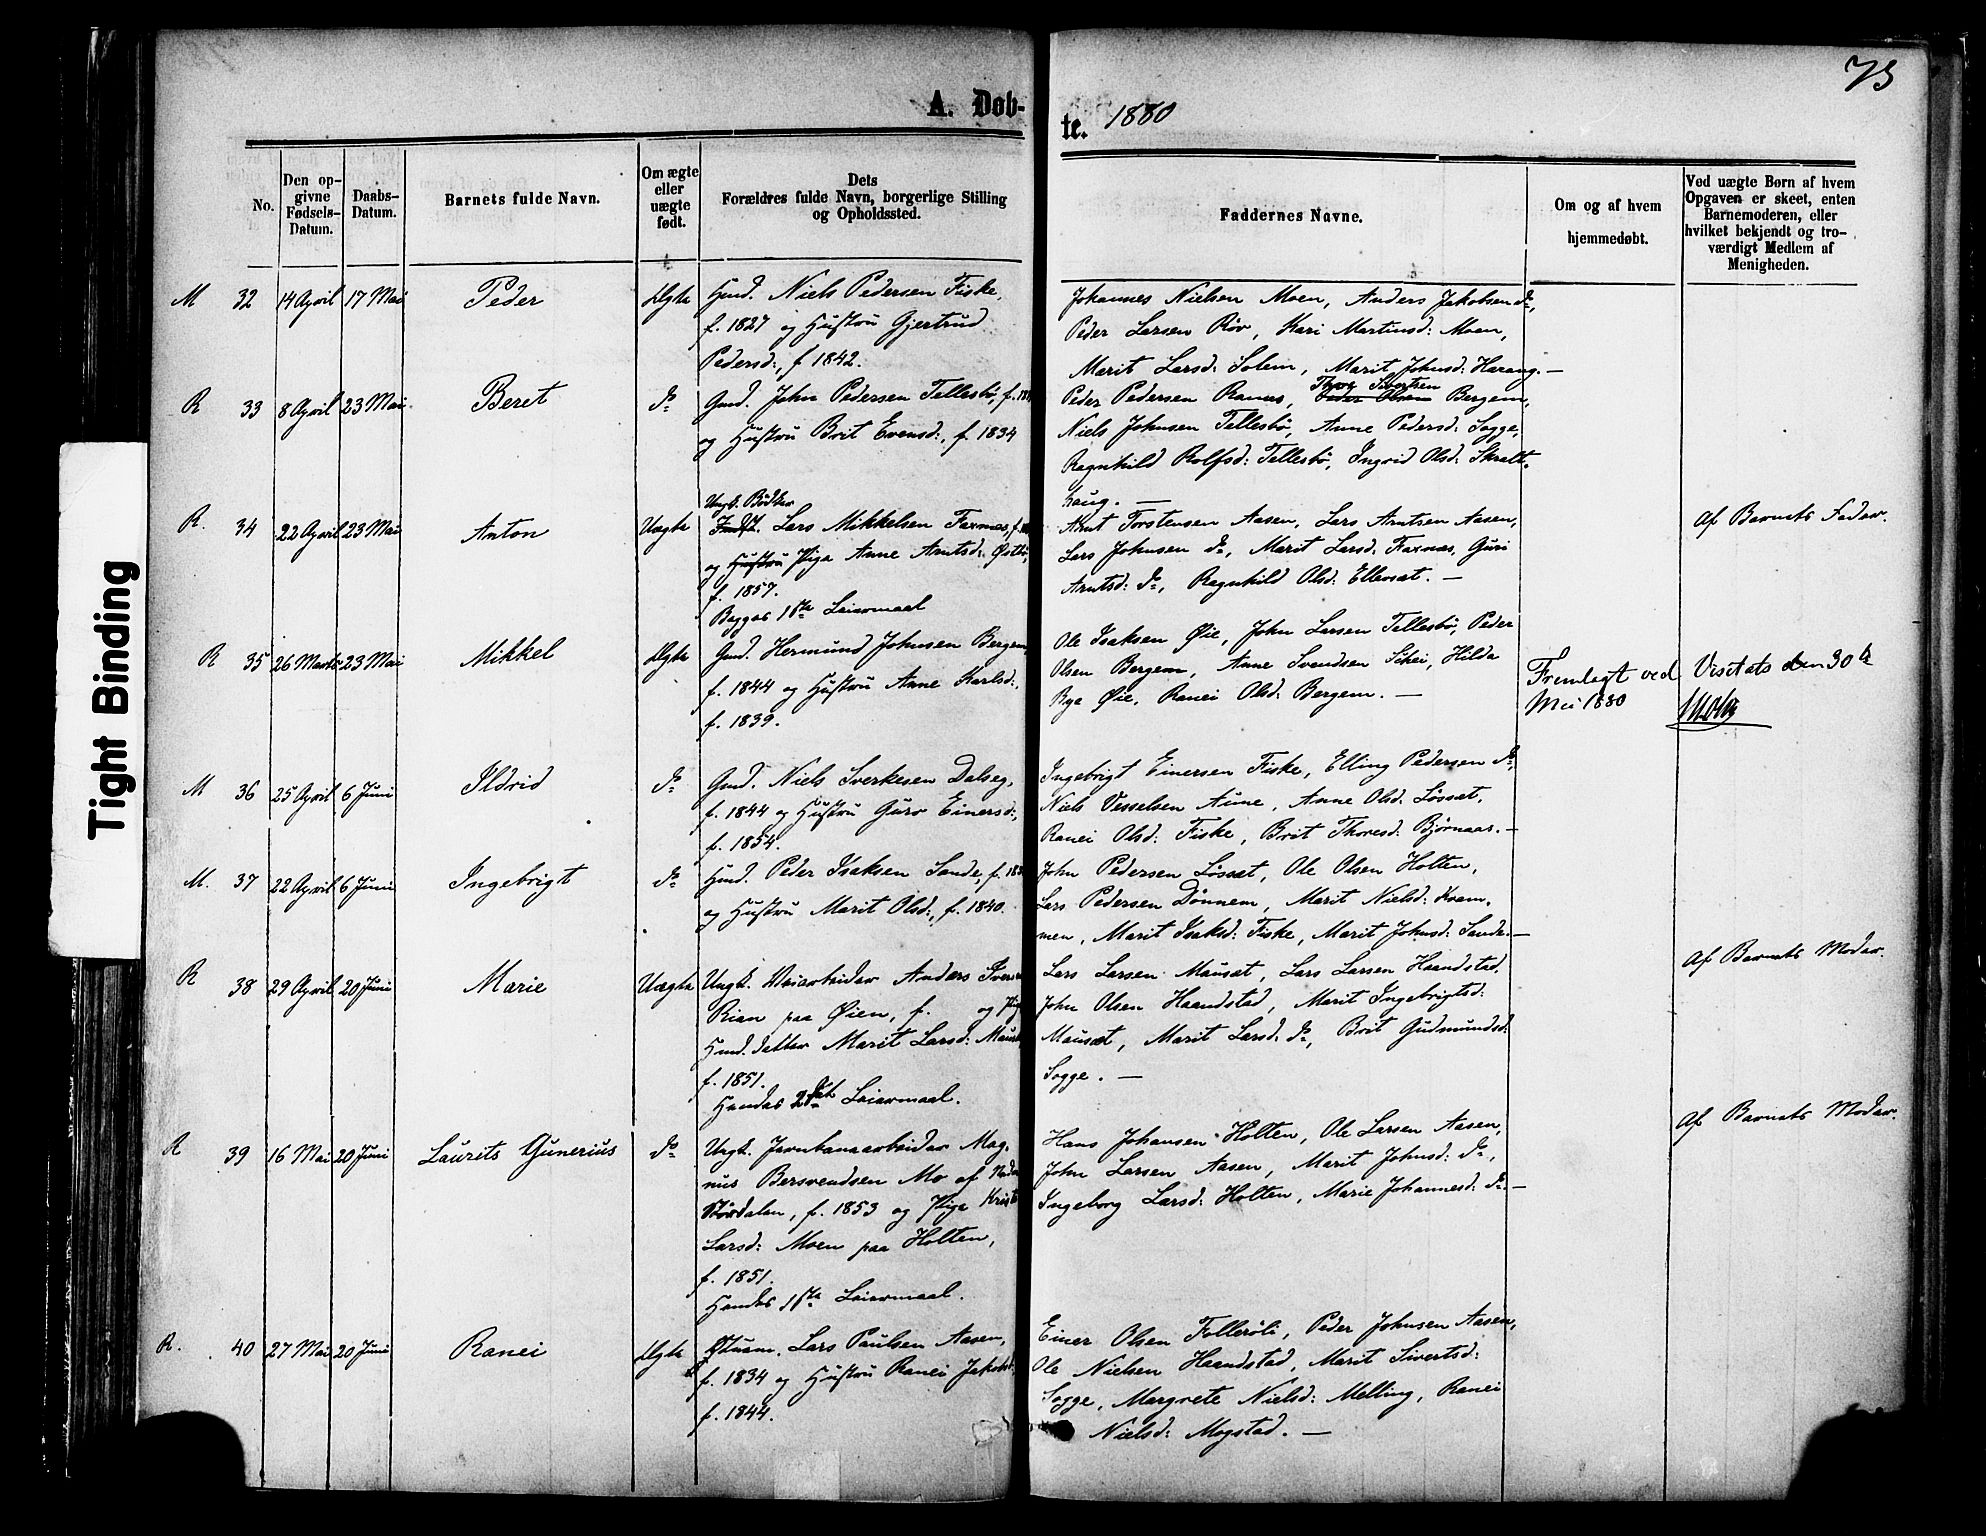 73
A. Døb-
te. 1880
No.
Den op-
givne
Fødsels-
Datum.
Daabs-
Datum.
Barnets fulde Navn.
Om ægte
eller
uægte
født.
Dets
Forældres fulde Navn, borgerlige Stilling
og Opholdssted.
Faddernes Navne.
Om og af hvem
hjemmedøbt.
Ved uægte Børn af hvem
Opgaven er skeet, enten
Barnemoderen, eller
hvilket bekjendt og tro-
værdigt Medlem af
Menigheden.
M 32 14 April 17 Mai Peder Ægte
Hmd. Niels Pedersen Fiske,
f. 1827 og Hustru Gjertrud
Pedersd:, f 1842.
Johannes Nielsen Moen, Anders Jakobsen do,
Peder Larsen Röv, Kari Martinsd: Moen,
Marit Larsd: Solem, Marit Johnsd: Harang. —
R 33 8 April 23 Mai Beret do
Gmd. John Pedersen Tellesbö, f.
og Hustru Brit Evensd:, f. 1834
Thore Sivertsen
Peder Pedersen Ranes, Peder Olsen Bergem,
Niels Johnsen Tellesbö, Anne Pedersd: Sogge,
Ragnhild Rolfsd: Tellesbö, Ingrid Olsd: Skralt-
haug. —
R. 34 22 April 23 Mai Anton Uægte
Ungk. Bödker
Lars Mikkelsen Faxnæs, f.
og Hustru Pige Anne Arntsd: Østbö,
f. 1857.
Begges 1ste Leiermaal
Arnt Torstensen Aasen, Lars Arntsen Aasen,
Lars Johnsen do, Marit Larsd: Faxnæs, Guri
Arntsd: do, Ragnhild Olsd: Ellevset. —
Af Barnets Fader.
R 35 26 Marts 23 Mai Mikkel Ægte
Gmd. Hermund Johnsen Bergem,
f. 1844 og Hustru Anne Karlsd:,
f. 1839.
Ole Isaksen Øie, John Larsen Tellesbö, Peder
Olsen Bergem, Anne Svendsen Schei, Hilda
Rye Øie, Ranei Olsd: Bergem. —
Fremlagt ved Visitats den 30te
Mai 1880
M 36 25 April 6 Juni Ildrid do
Gmd. Niels Sverkesen Dalseg,
f. 1844 og Hustru Guro Einersd:,
f. 1854.
Ingebrigt Einersen Fiske, Elling Pedersen do,
Niels Vesselsen Aune, Anne Olsd: Løsset,
Ranei Olsd: Fiske, Brit Thoresd: Bjørnaas. —
M. 37 22 April 6 Juni Ingebrigt do
Hmd. Peder Isaksen Sande, f.
og Hustru Marit Olsd:, f. 1840.
John Pedersen Løsset, Ole Olsen Holten,
Lars Pedersen Dönnem, Marit Nielsd: Kvam-
men, Marit Isaksd: Fiske, Marit Johnsd: Sande. —
R 38 29 April 20 Juni Marie Uægte
Ungk. Veiarbeider Anders
Rian paa Øien, f. og
Hmd. datter Marit Larsd:
f. 1851.
Hendes 2det Leiermaal.
Lars Larsen Mauset, Lars Larsen Haandstad
John Olsen Haandstad, Marit Ingebrigtsd:
Mauset, Marit Larsd: do, Brit Gudmundsd:
Sogge. —
Af Barnets Moder.
R 39 16 Mai 20 Juni Laurits Gunerius do
Ungk. Jernbanearbeider Mag-
nus Bersvendsen Mo af
Størdalen, f. 1853 og Pige
Larsd: Moen paa Holten,
f. 1851.
Hendes 1ste Leiermaal.
Hans Johansen Holten, Ole Larsen Aasen,
John Larsen Aasen, Marit Johnsd: do,
Ingeborg Larsd: Holten, Marie Johannesd: do. —
Af Barnets Moder.
R. 40 27 Mai 20 Juni Ranei Ægte
Lars Paulsen Aasen,
f. 1834 og Hustru Ranei Jakobsd:
f. 1844.
Einer Olsen Follerøli, Peder Johnsen Aasen,
Ole Nielsen Haandstad, Marit Sivertsd:
Sogge, Margrete Nielsd: Melling, Ranei
Nielsd: Mogstad. —
Tight Binding